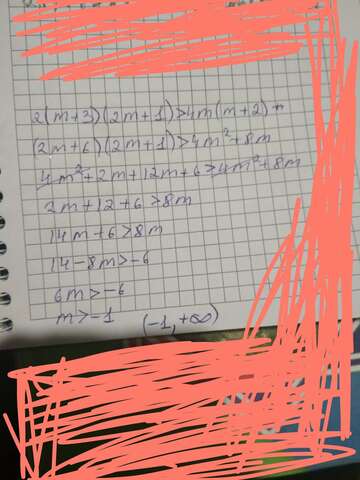 2(m+3)(2m+1)>4m(m+2)
(2m+6)(2m+1)>4m²+8m
4m²+2m+12m+6>4m²+8m
2m+12+6>8m
14m+6>8m
14-8m>-6
6m>-6
m>-1 (-1,+∞)